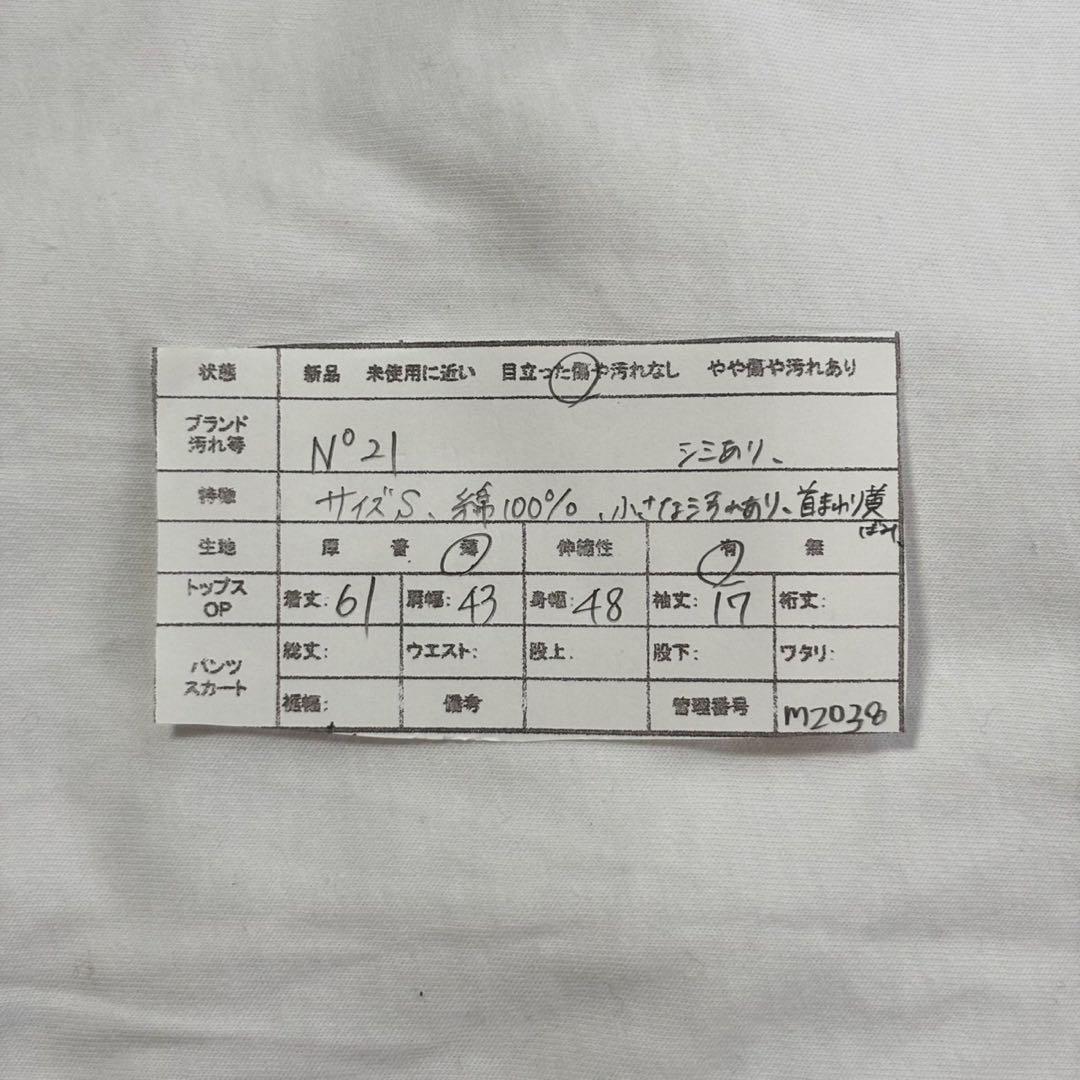 状態 新品 未使用に近い 目立った傷や汚れなし やや傷や汚れあり
ブランド
汚れ等
N°21 シミあり、
特徴 サイズS、綿100%、小さな汚れあり、首まわり黄
ばみ、
生地 厚 普 薄 伸縮性 有 無
トップス
OP
着丈: 61 肩幅: 43 身幅: 48 袖丈: 17 裄丈:
パンツ
スカート
総丈: ウエスト: 股上: 股下: ワタリ:
裾幅: 備考 管理番号 M2038